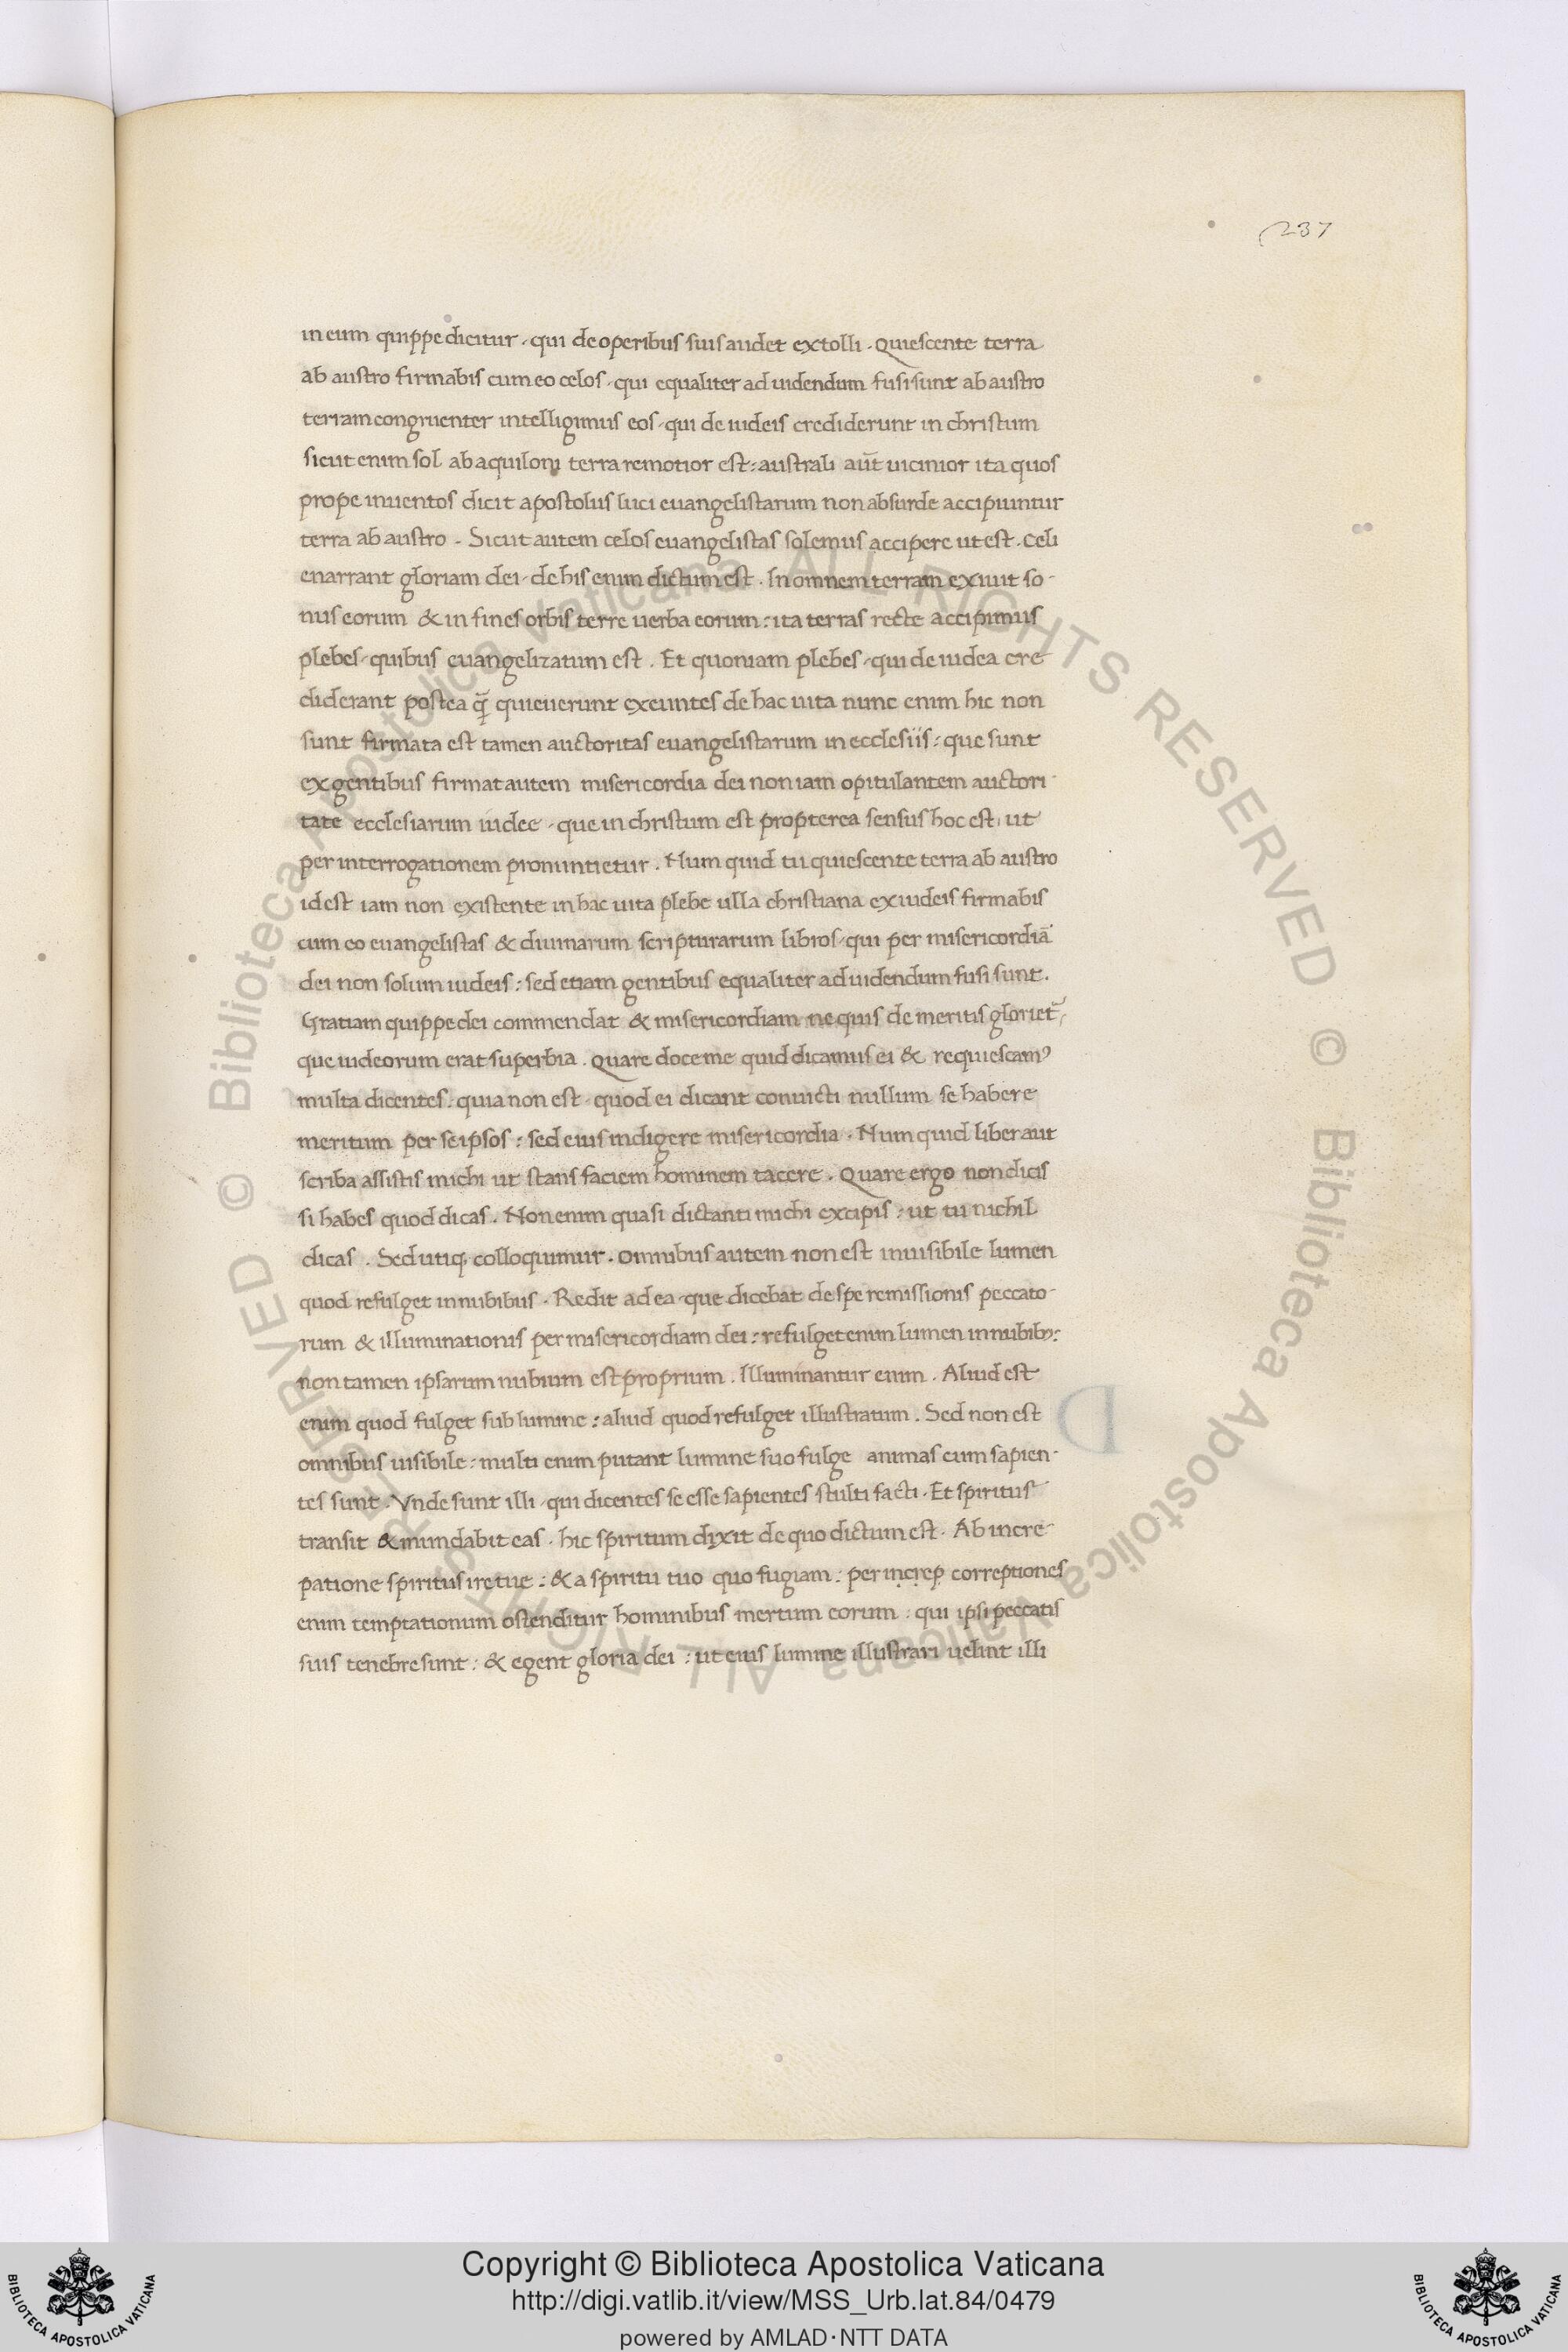 237
in eum quippe dicitur · qui de operibus suis audet extolli . Quiescente terra
ab austro firmabis cum eo celos · qui equaliter ad uidendum fusi sunt ab austro
terram congruenter intelligimus eos · qui de iudeis crediderunt in christum
sicut enim sol ab aquiloni terra remotior est : australi aūt uicinior ita quos
prope inuentos dicit apostolus luci euangelistarum non absurde accipiuntur
terra ab austro . Sicut autem celos euangelistas solemus accipere ut est . Celi
enarrant gloriam dei · de his enim dictum est . In omnem terram exiuit so-
nus eorum & in fines orbis terre uerba eorum : ita terras recte accipimus
plebes · quibus euangelizatum est . Et quoniam plebes · qui de iudea cre-
diderant postea q̄ quieuerunt exeuntes de hac uita nunc enim hic non
sunt firmata est tamen auctoritas euangelistarum in ecclesiis : que sunt
ex gentibus firmat autem misericordia dei non iam opitulantem auctori-
tate ecclesiarum iudee · que in christum est propterea sensus hoc est, ut
per interrogationem pronuntietur . Num quid tu quiescente terra ab austro
id est iam non existente in hac uita plebe ulla christiana ex iudeis firmabis
cum eo euangelistas & diuinarum scripturarum libros · qui per misericordiā
dei non solum iudeis : sed etiam gentibus equaliter ad uidendum fusi sunt .
Gratiam quippe dei commendat & misericordiam ne quis de meritis glorietʳ,
que iudeorum erat superbia . Quare doce me quid dicamus ei & requiescamꝰ
multa dicentes . quia non est · quod ei dicant conuicti nullum se habere
meritum per se ipsos : sed eius indigere misericordia . Num quid liber aut
scriba assistis michi ut stans faciem hominem tacere . Quare ergo non dicis
si habes quod dicas . Non enim quasi dictanti michi excipis : ut tu nichil
dicas . Sed utiq; colloquimur . omnibus autem non est inuisibile lumen
quod refulget in nubibus . Redit ad ea · que dicebat de spe remissionis peccato-
rum & illuminationis per misericordiam dei : refulget enim lumen in nubibꝰ :
non tamen ipsarum nubium est proprium . Illuminantur enim . Aliud est
enim quod fulget sub lumine : aliud quod refulget illustratum . Sed non est
omnibus uisibile : multi enim putant lumine suo fulge animas cum sapien-
tes sunt . Vnde sunt illi · qui dicentes se esse sapientes stulti facti . Et spiritus
transit & mundabit eas . hic spiritum dixit de quo dictum est . Ab incre-
patione spiritus ire tue : & a spiritu tuo quo fugiam : per increp correptiones
enim temptationum ostenditur hominibus mertum eorum : qui ipsi peccatis
suis tenebre sunt : & egent gloria dei : ut eius lumine illustrari uelint illi
Copyright © Biblioteca Apostolica Vaticana
http://digi.vatlib.it/view/MSS_Urb.lat.84/0479
powered by AMLAD·NTT DATA
BIBLIOTECA APOSTOLICA VATICANA
BIBLIOTECA APOSTOLICA VATICANA